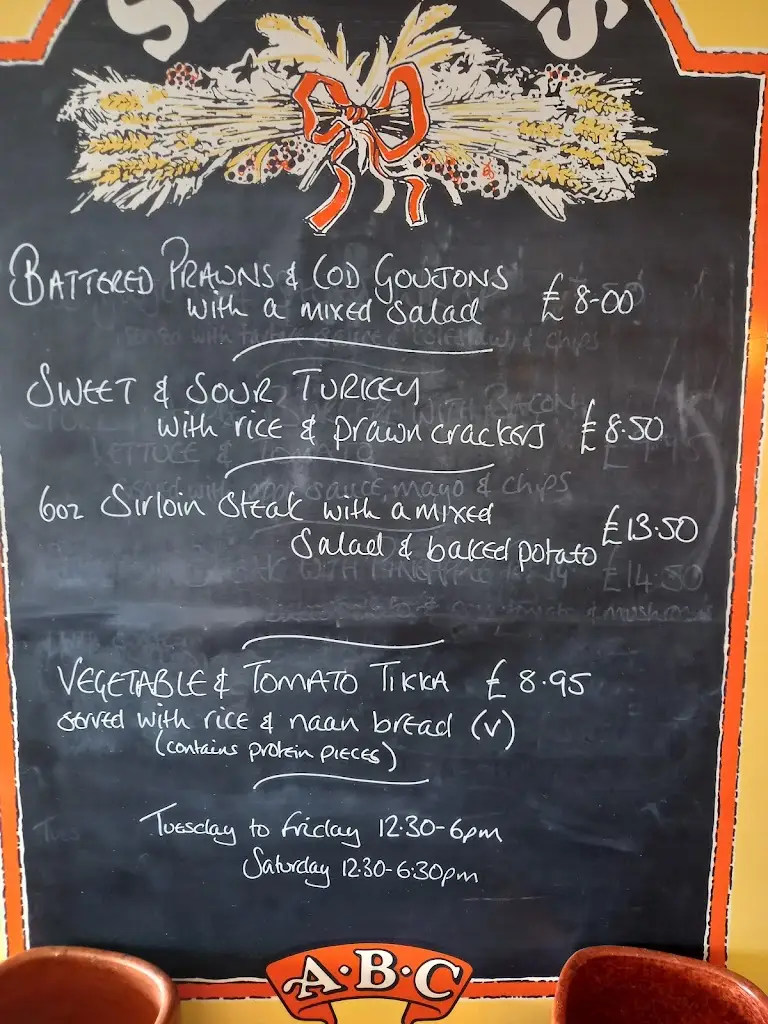 BATTERED PRAWNS & COD GOUJONS
with a mixed salad £8-00
SWEET & SOUR TURKEY
with rice & prawn crackers £8.50
6oz Sirloin Steak with a mixed
salad & baked potato £13.50
VEGETABLE & TOMATO TIKKA £8.95
served with rice & naan bread (v)
(contains protein pieces)
Tuesday to Friday 12.30-6pm
Saturday 12.30-6.30pm
A·B·C